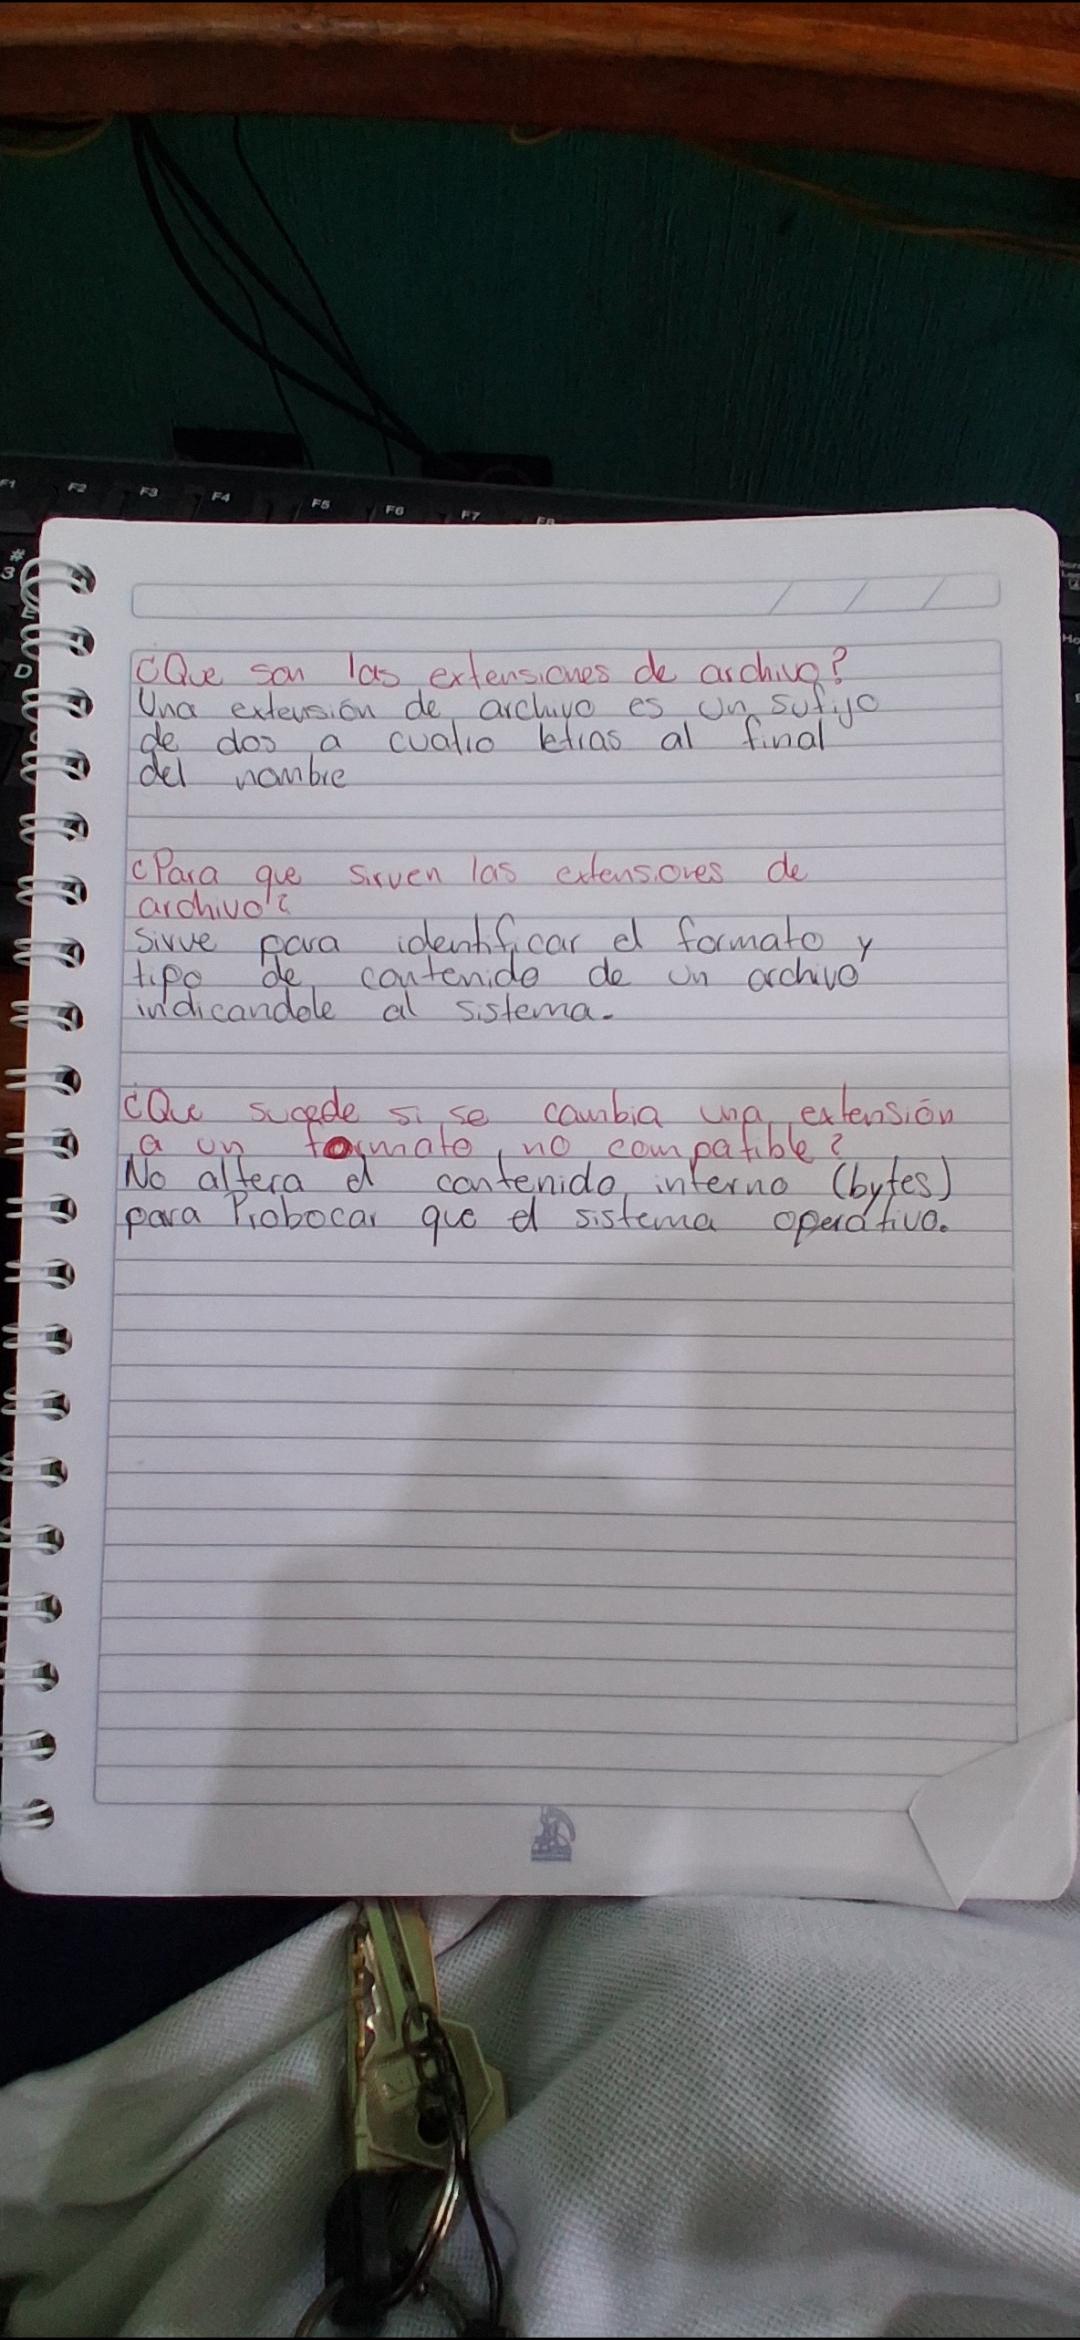 F1 F2 F3 F4 F5 F6 F7 F8
#
3
E
D
¿Que son las extensiones de archivo?
Una extensión de archivo es un sufijo
de dos a cuatro letras al final
del nombre
¿Para que sirven las extensiones de
archivo?
Sirve para identificar el formato y
tipo de contenido de un archivo
indicandole al sistema.
¿Que sucede si se cambia una extensión
a un formato no compatible?
No altera el contenido interno (bytes)
para Probocar que el sistema operativo.